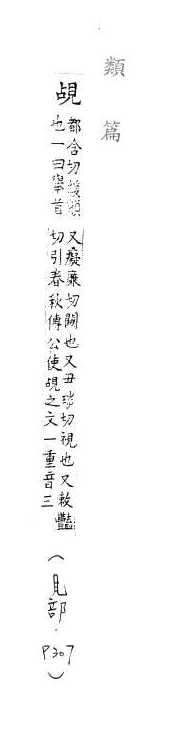 類篇
覘
都含切緩頰
也一曰舉首
又癡廉切闚也又丑琰切視也又敕豔
切引春秋傳公使覘之文一重音三
(見部.P307)